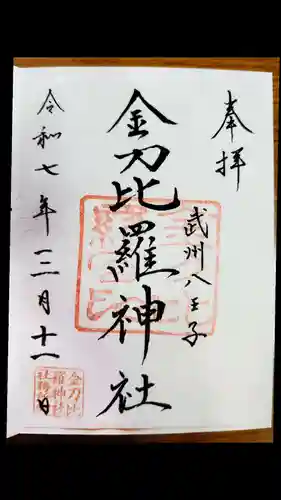 奉拝
武州八王子
金刀比羅神社
令和七年三月十一日
金刀比
羅神社